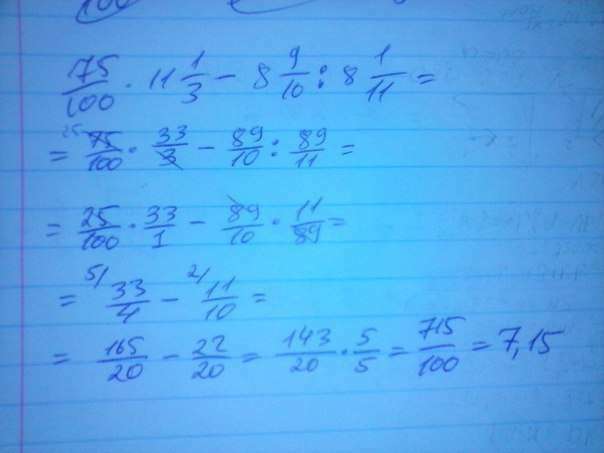 75/100 · 11 1/3 - 8 9/10 : 8 1/11 =
= 25 75/100 · 33/3 - 89/10 : 89/11 =
= 25/100 · 33/1 - 89/10 · 11/89 =
= 5/ 33/4 - 2/ 11/10 =
= 165/20 - 22/20 = 143/20 · 5/5 = 715/100 = 7,15